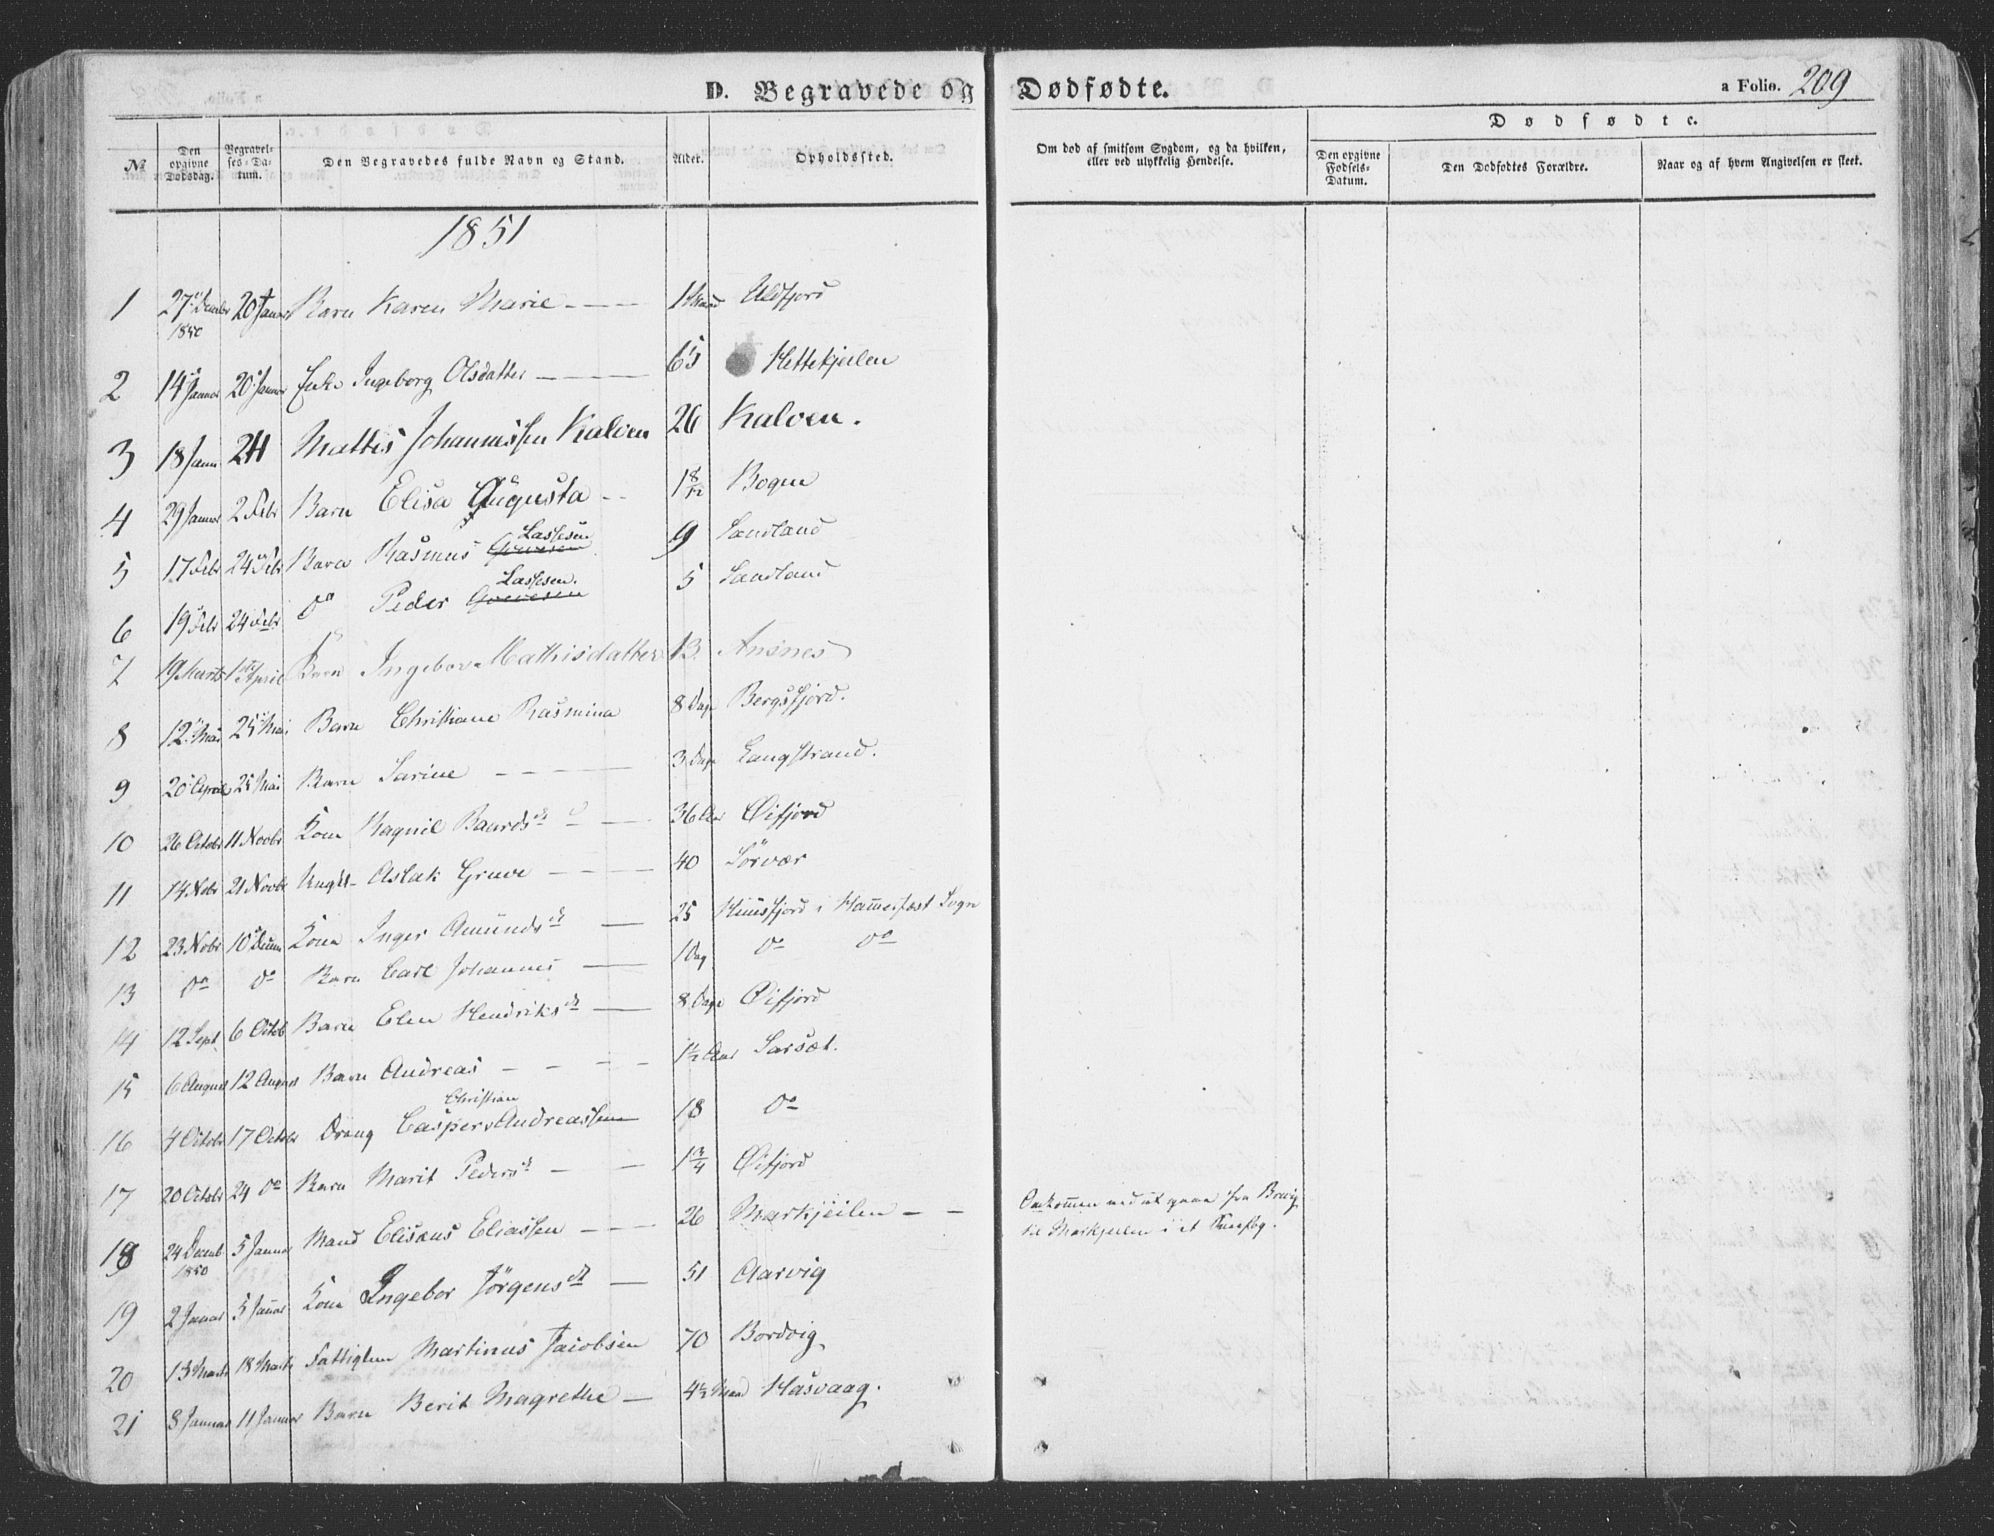 D. Begravede og Dødfødte. a Folio. 209
№ Den opgivne Dødsdag. Begravelses-Datum. Den Begravedes fulde Navn og Stand. Alder. Opholdssted. Om død af smitsom Sygdom, og da hvilken, eller ved ulykkelig Hendelse. Dødfødte. Den opgivne Fødsels-Datum. Den Dødfødtes Forældre. Naar og af hvem Angivelsen er skeet.
1851
1 27 Decembr 1850 20 Januar Barn Karen Marie 1 Maaned Ulsfjord
2 14 Januar 20 Januar Enke Ingeborg Olsdatter 65 Hettekjeilen
3 18 Janu 24 Mattis Johannessen Kalven 26 Kalven.
4 29 Januar 2 Febr Barn Elisa Augusta 1 8/12 Bogen
5 17 Febr 24 Febr Barn Rasmus Lassesen 9 Sandland
6 19 Febr 24 Febr Do Peder Lassesen. 5 Sandland
7 19 Marts 1 April Barn Ingebor Mathisdatter 13. Ansnes
8 12 Mai 25 Mai Barn Christiane Rasmina 8 Dage Bergsfjord.
9 20 April 25 Mai Barn Sarine 3 Dage Langstrand.
10 26 Octobr 11 Novbr Kone Magnil Baardsdr 36 Aar Øifjord
11 14 Nobr 21 Novbr Ungkl Aslak Gruve 40 Sørvær
12 23 Nobr 10 Decem Kone Inger Amundsdr 25 i Hammerfest Sogn
13 Do Do Barn Carl Johannes 1 Dag Do Do
14 12 Sept. 6 Octob Barn Elen Hendriksdr 8 Dage Øifjord
15 6 August 12 August Barn Andreas 1½ Aar Sarsæt.
16 4 Octobr 17 Octobr Dreng Casper Christian Andreassen 18 Do
17 20 Octobr 24 Do Barn Marit Pedersdr 1¾ Øifjord
18 24 Decemb 1850 5 Januar Mand Elisæus Eliassen 26 Markjeilen Omkommen ved at gaae fra Brevig
til Markjeilen i et Sneefog.
19 2 Januar 5 Januar Kone Ingebor Jörgensdr 51 Aarvig
20 13 Marts 18 Marts Fattiglem Martinus Jacobsen 70 Bordvig
21 8 Januar 11 Januar Barn Berit Magrethe 4½ Maa Hasvaag.